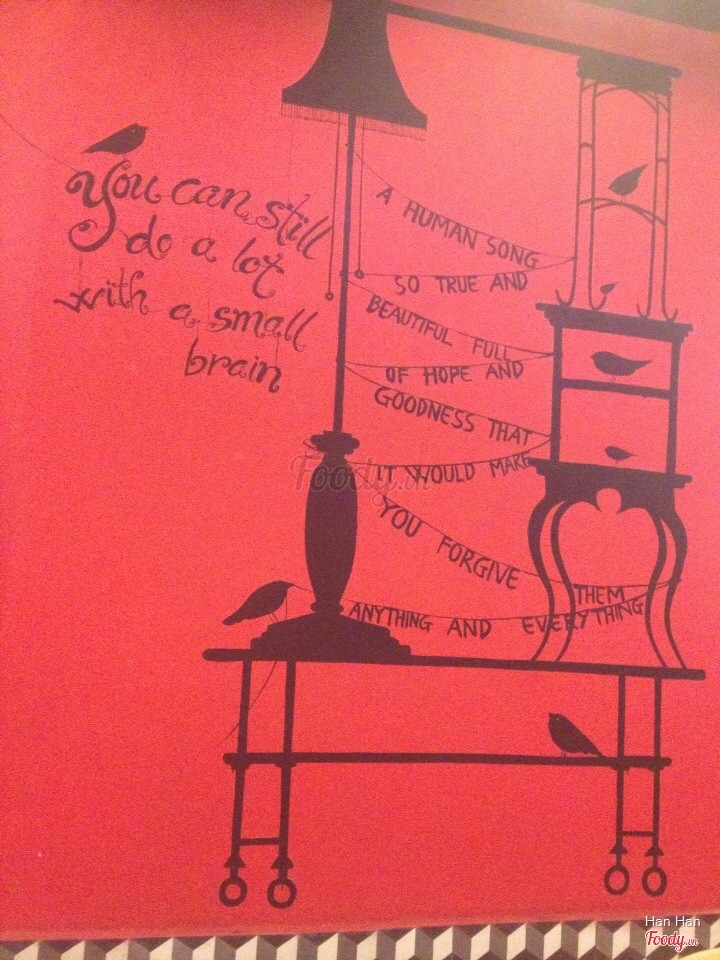 You can still
do a lot
with a small
brain
A HUMAN SONG
SO TRUE AND
BEAUTIFUL FULL
OF HOPE AND
GOODNESS THAT
IT WOULD MAKE
YOU FORGIVE
THEM
ANYTHING AND EVERYTHING
Foody.vn
Han Han
Foody.vn